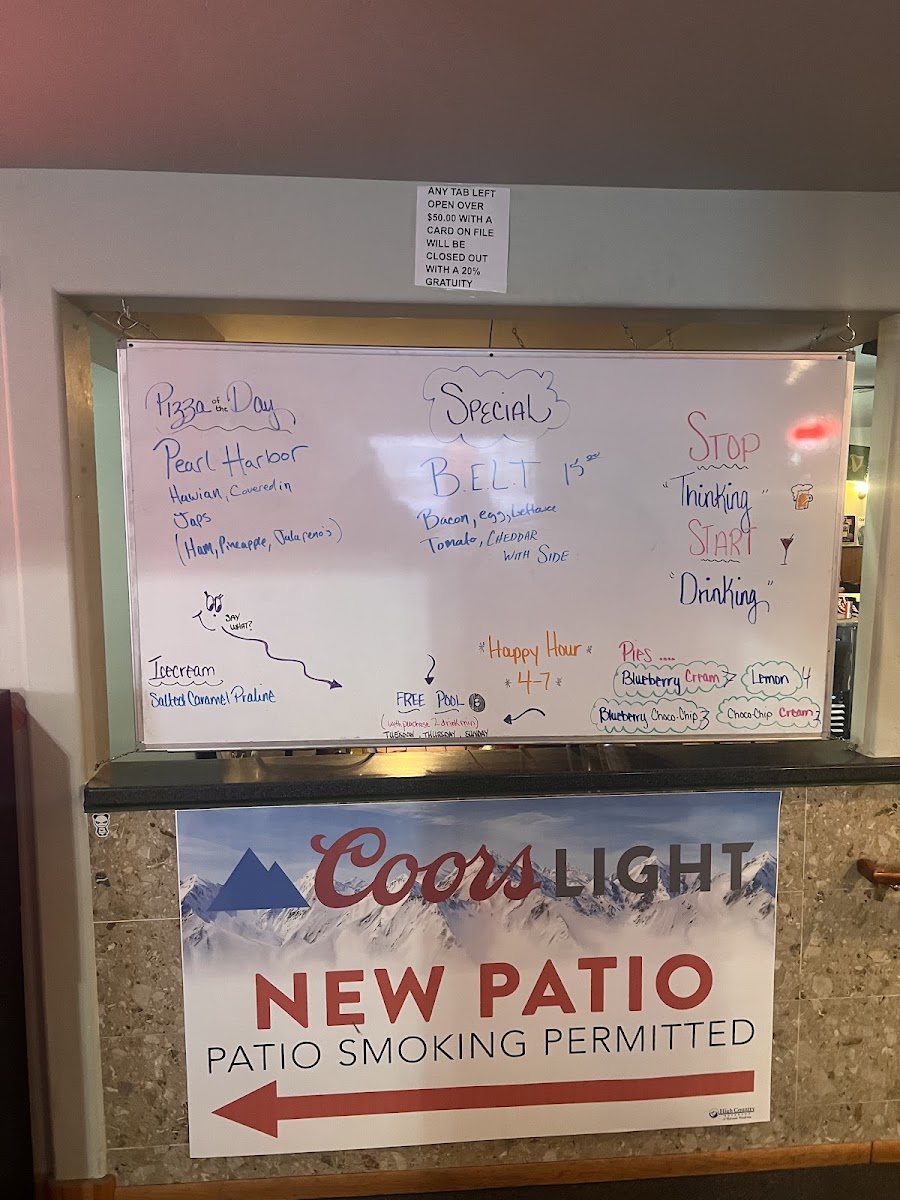 ANY TAB LEFT
OPEN OVER
$50.00 WITH A
CARD ON FILE
WILL BE
CLOSED OUT
WITH A 20%
GRATUITY
Pizza of the Day
Pearl Harbor
Hawian, Covered in
Japs
(Ham, Pineapple, Jalapeno's)
SAY
WHAT?
Icecream
Salted Caramel Praline
SPECIAL
B.E.L.T 15.00
Bacon, egg, lettuce
Tomato, CHEDDAR
WITH SIDE
*Happy Hour*
*4-7*
FREE POOL 8
(with purchase 2 drink min)
TUESDAY, THURSDAY, SUNDAY
STOP
"Thinking"
START
"Drinking"
Pies ....
Blueberry Cream 7 Lemon 4
Blueberry Choco-Chip 3 Choco-Chip Cream 3
Coors LIGHT
NEW PATIO
PATIO SMOKING PERMITTED
High Country